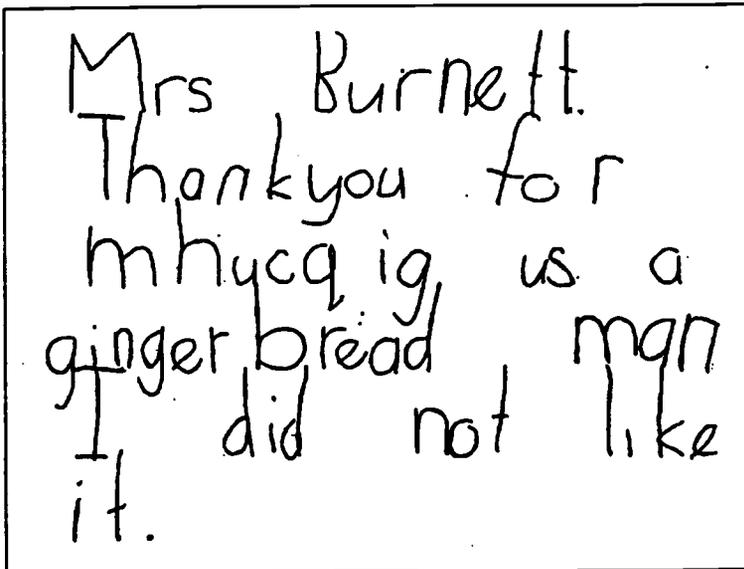 Mrs Burnett.
Thankyou for
mhycqig us a
gingerbread man
I did not like
it.